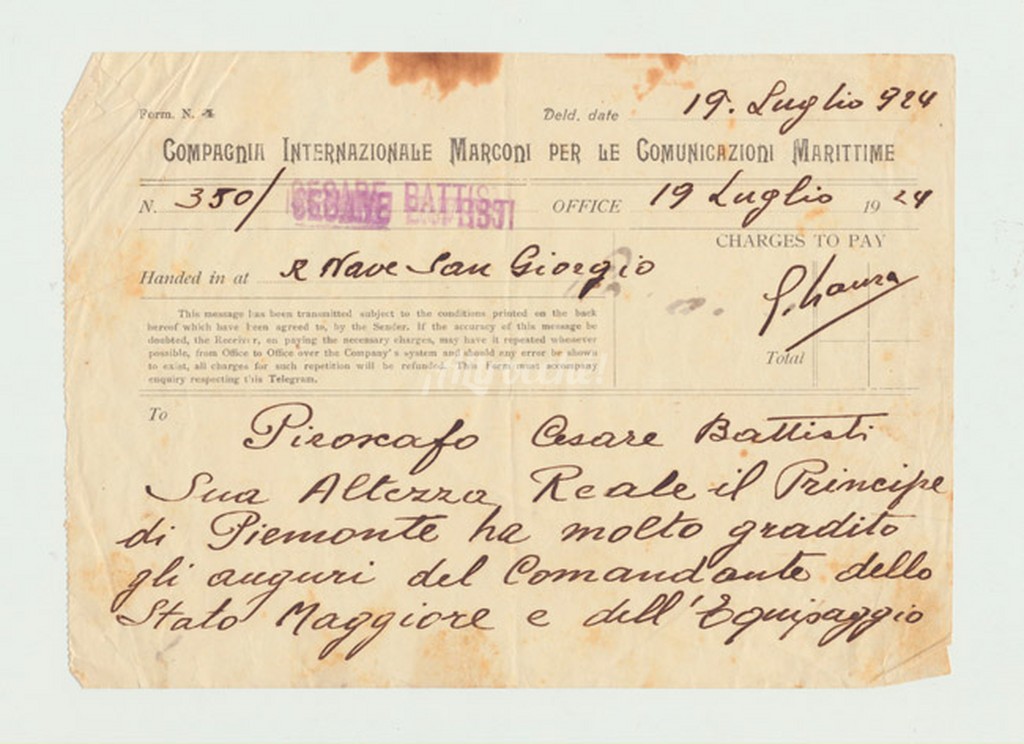 Form. N. 4
Deld. date 19. Luglio 924
COMPAGNIA INTERNAZIONALE MARCONI PER LE COMUNICAZIONI MARITTIME
N. 350/ CESARE BATTIS OFFICE 19 Luglio 19 24
CHARGES TO PAY
Handed in at R Nave San Giorgio
This message has been transmitted subject to the conditions printed on the back
hereof which have been agreed to, by the Sender. If the accuracy of this message be
doubted, the Receiver, on paying the necessary charges, may have it repeated whenever
possible, from Office to Office over the Company's system and should any error be shown
to exist, all charges for such repetition will be refunded. This Form must accompany
enquiry respecting this Telegram.
Total
To
Piroscafo Cesare Battisti
Sua Altezza Reale il Principe
di Piemonte ha molto gradito
gli auguri del Comandante dello
Stato Maggiore e dell'Equipaggio